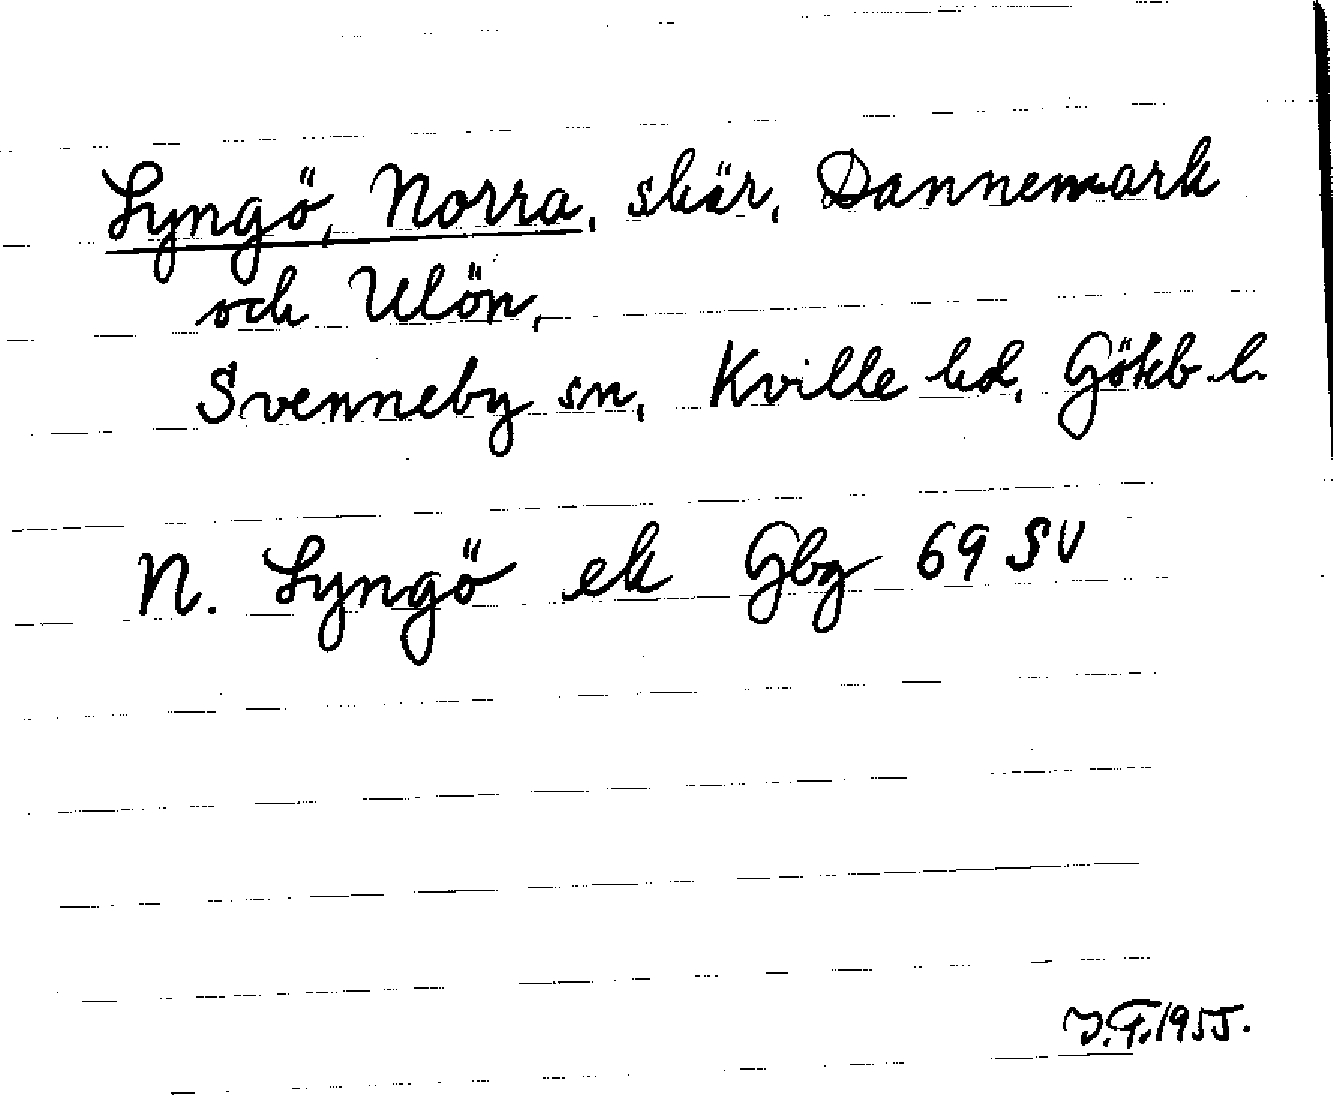 Lyngö, Norra, skär, Dannemark
och Ulön,
Svenneby sn, Kville hd, Göteb. l.
N. Lyngö ek Gbg 69 SV
J.F. 1955.